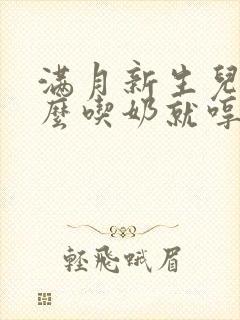 滿月新生兒
麼喫奶就哼
輕飛哦眉